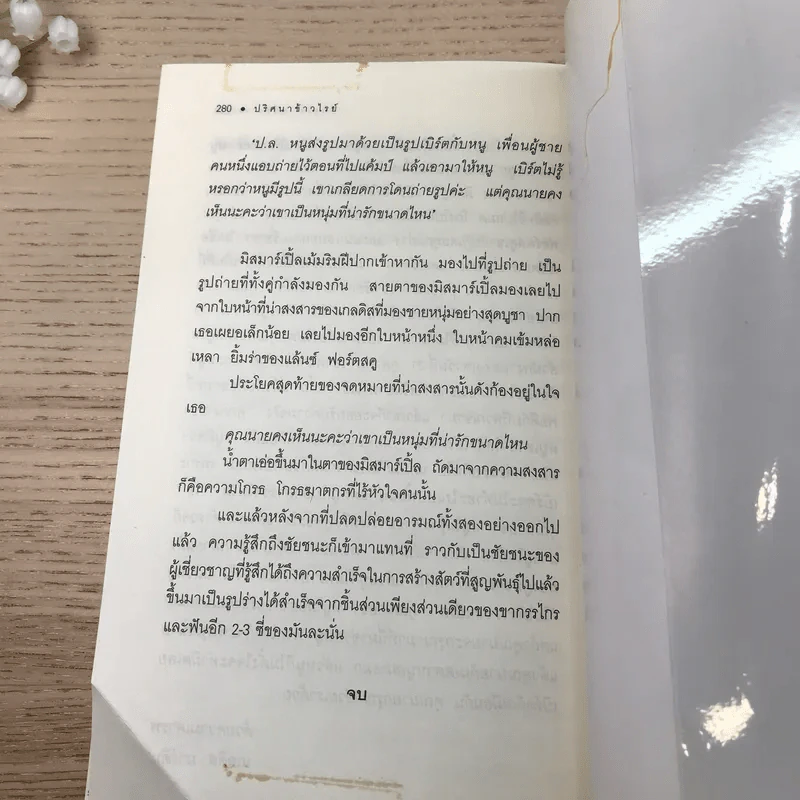 280 • ปริศนาข้าวไรย์
'ป.ล. หนูส่งรูปมาด้วยเป็นรูปเบิร์ตกับหนู เพื่อนผู้ชาย
คนหนึ่งแอบถ่ายไว้ตอนที่ไปแค้มป์ แล้วเอามาให้หนู เบิร์ตไม่รู้
หรอกว่าหนูมีรูปนี้ เขาเกลียดการโดนถ่ายรูปค่ะ แต่คุณนายคง
เห็นนะคะว่าเขาเป็นหนุ่มที่น่ารักขนาดไหน'
มิสมาร์เปิ้ลเม้มริมฝีปากเข้าหากัน มองไปที่รูปถ่าย เป็น
รูปถ่ายที่ทั้งคู่กำลังมองกัน สายตาของมิสมาร์เปิ้ลมองเลยไป
จากใบหน้าที่น่าสงสารของเกลดิสที่มองชายหนุ่มอย่างสุดบูชา ปาก
เธอเผยอเล็กน้อย เลยไปมองอีกใบหน้าหนึ่ง ใบหน้าคมเข้มหล่อ
เหลา ยิ้มร่าของแล้นซ์ ฟอร์ตสคู
ประโยคสุดท้ายของจดหมายที่น่าสงสารนั้นดังก้องอยู่ในใจ
เธอ
คุณนายคงเห็นนะคะว่าเขาเป็นหนุ่มที่น่ารักขนาดไหน
น้ำตาเอ่อขึ้นมาในตาของมิสมาร์เปิ้ล ถัดมาจากความสงสาร
ก็คือความโกรธ โกรธฆาตกรที่ไร้หัวใจคนนั้น
และแล้วหลังจากที่ปลดปล่อยอารมณ์ทั้งสองอย่างออกไป
แล้ว ความรู้สึกถึงชัยชนะก็เข้ามาแทนที่ ราวกับเป็นชัยชนะของ
ผู้เชี่ยวชาญที่รู้สึกได้ถึงความสำเร็จในการสร้างสัตว์ที่สูญพันธุ์ไปแล้ว
ขึ้นมาเป็นรูปร่างได้สำเร็จจากชิ้นส่วนเพียงส่วนเดียวของขากรรไกร
และฟันอีก 2-3 ซี่ของมันละนั่น
จบ